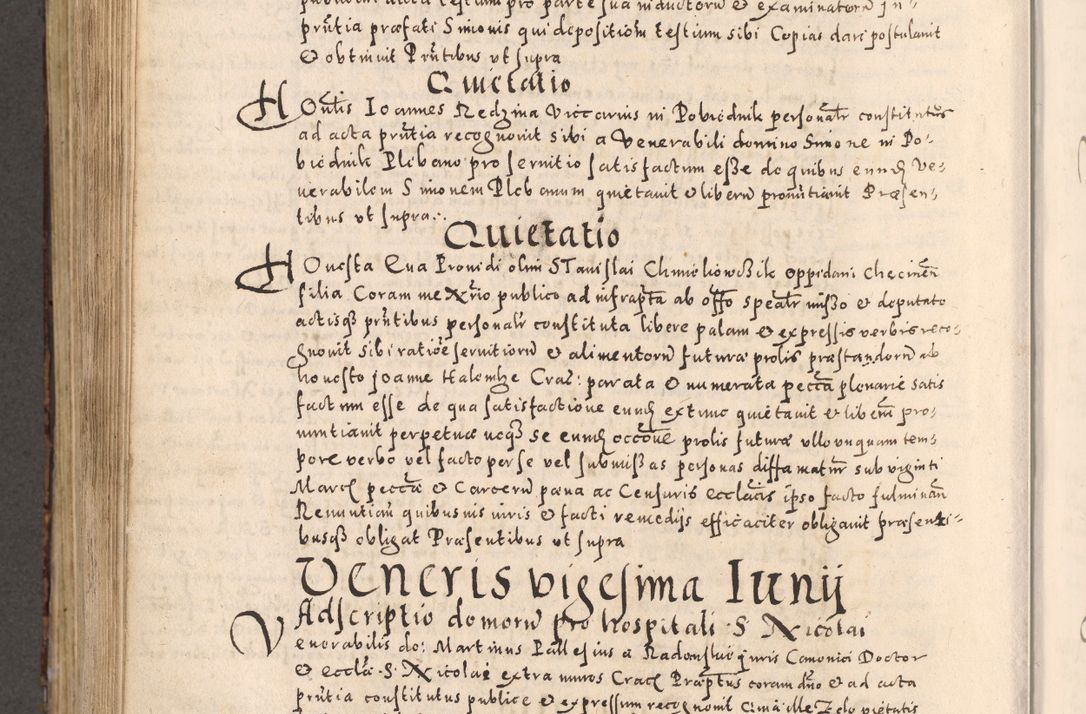 prntia præfati Simonis qui depositiom testium sibi Copias dari postulauit
& obtinuit Prntibus vt supra
Quietatio
Honlis Ioannes Redzina Viccarius in Pobiednik personalr constitutus
ad acta prntia recognouit sibi a Venerabili domino Simone in Po-
biednik Plebano pro seruitio satisfactum esse de quibus eundem Ve-
nerabilem Simonem Plebanum quietauit & liberum pronuntiauit Præsen-
tibus vt supra.
Quietatio
Honesta Eua Prouidi olim Stanislai Chmieliowczik oppidani Checinen
filia Coram me Nrio publico ad infrapta ab offo spealr misso & deputato
actisq prntibus personalr constituta libere palam & expressis verbis reco-
gnouit sibi ratioe seruitioru & alimentoru futuræ prolis præstandoru ab
honesto Joanne Kalomhe Crac: parata & numerata pecca plenarie satis
factum esse de qua satisfactione eundem ex tunc quietauit & liberm pro-
nuntiauit perpetuæ neqz se eundem occone prolis futuræ vllo vnquam tem-
pore verbo vel facto per se vel submissas personas diffamatur sub viginti
Marcis pecca & Carceru pæna ac Censuris ecclacis ipso facto fulminan
Renuntian quibusuis iuris & facti remedijs efficaciter obligauit præsenti-
busqz obligat Præsentibus vt supra
Veneris vigesima Iunij
Adscriptio domoru pro hospitali S Nicolai
Venerabilis do: Martinus Pallesius a Radomsko iuris Canonici Doctor
& eccla S Nicolai extra muros Crac Præptus coram dno & ad acta
prntia constitutus publice & expressum recognouit Quia ille Zelo pietatis